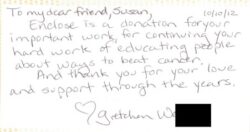 To my dear friend, Susan, 10/10/12
Enclose is a donation for your
important work, for continuing your
hard work of educating people
about ways to beat cancer.
And thank you for your love
and support through the years.
♡ gretchen W